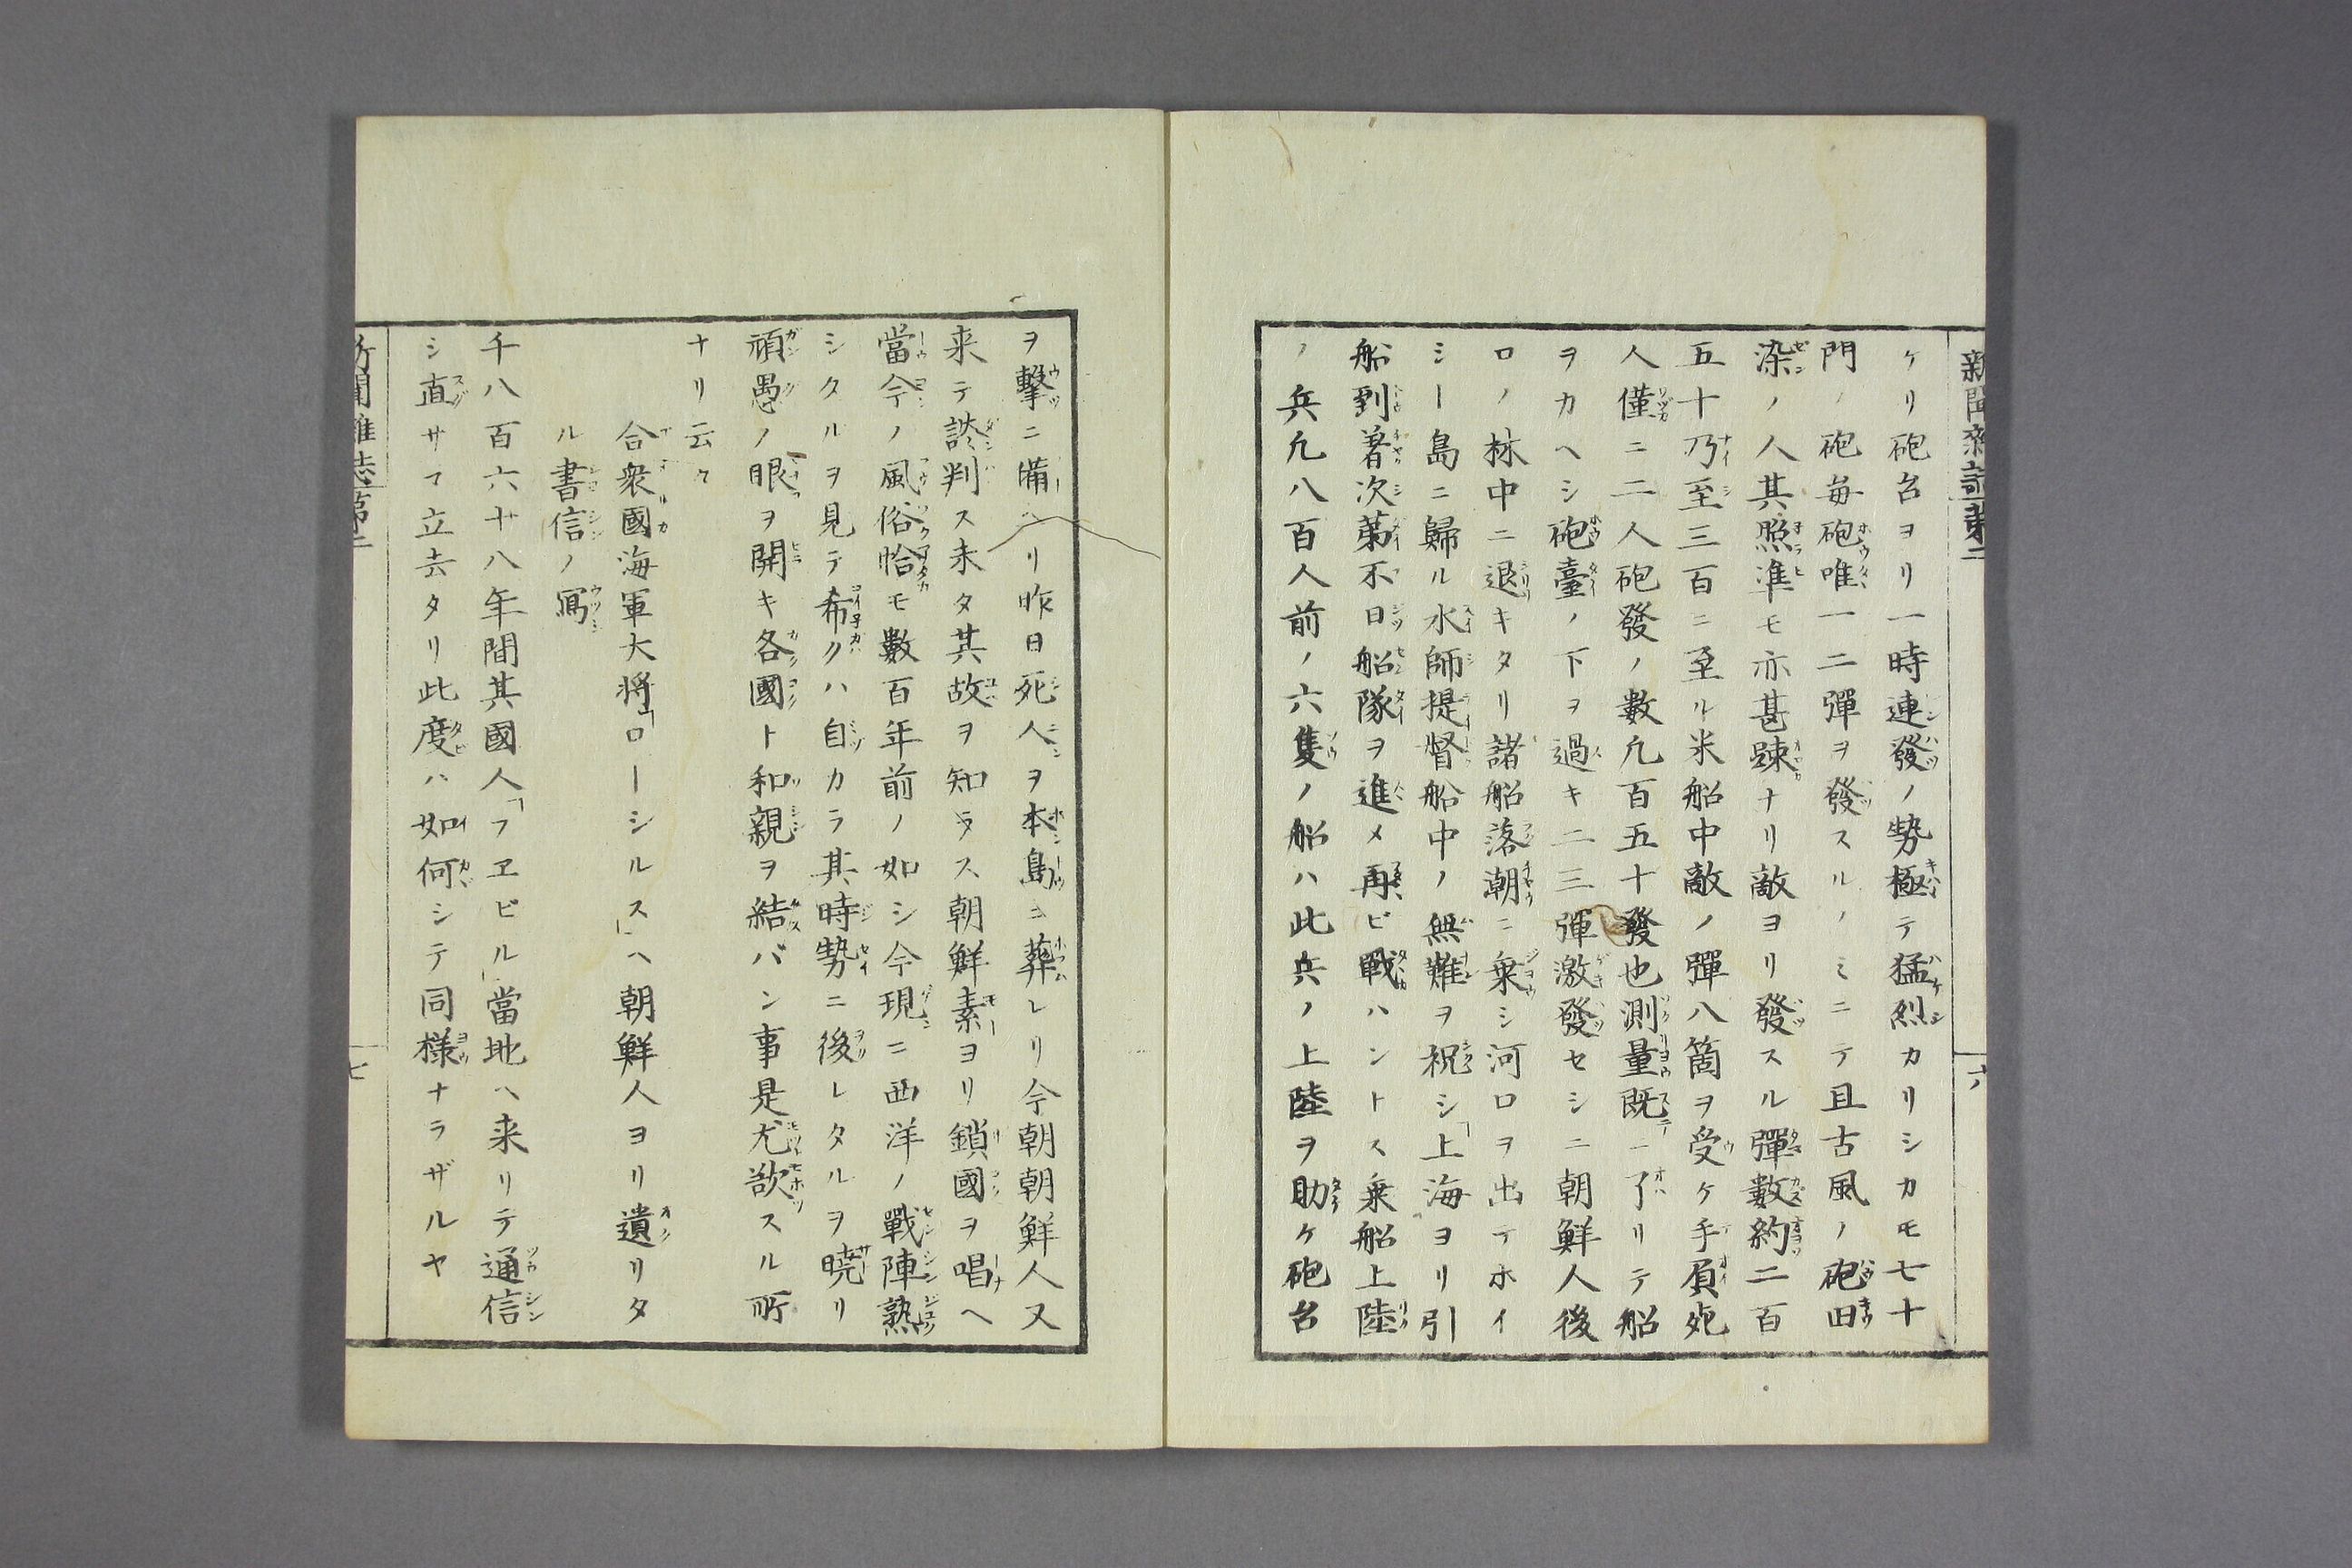 新聞雑誌第二
六
ケリ砲台ヨリ一時連發ノ勢極テ猛烈カリシカモ七十
門ノ砲毎砲唯一二彈ヲ發スルノミニテ且古風ノ砲旧
染ノ人其照準モ亦甚踈ナリ敵ヨリ發スル彈數約二百
五十乃至三百ニ至ル米船中敵ノ彈八箇ヲ受ケ手負死
人僅ニ二人砲發ノ數凢百五十發也測量既ニ了リテ船
ヲカヘシ砲臺ノ下ヲ過キ二三彈激發セシニ朝鮮人後
ロノ林中ニ退キタリ諸船落潮ニ乗シ河口ヲ出テホイ
シー島ニ歸ル水師提督船中ノ無難ヲ祝シ「上海ヨリ引
船到著次第不日船隊ヲ進メ再ビ戰ハントス乗船上陸
ノ兵凢八百人前ノ六隻ノ船ハ此兵ノ上陸ヲ助ケ砲台
ヲ擊ニ備ヘリ昨日死人ヲ本島ニ葬レリ今朝朝鮮人又
来テ談判ス未タ其故ヲ知ラス朝鮮素ヨリ鎖國ヲ唱ヘ
當今ノ風俗恰モ數百年前ノ如シ今現ニ西洋ノ戰陣熟
シタルヲ見テ希クハ自カラ其時勢ニ後レタルヲ曉リ
頑愚ノ眼ヲ開キ各國ト和親ヲ結バン事是尤欲スル所
ナリ云々
合衆國海軍大将「ローシルス」ヘ朝鮮人ヨリ遺リタ
ル書信ノ寫
千八百六十八年間其國人「フヱビル」當地ヘ来リテ通信
シ直サマ立去タリ此度ハ如何シテ同様ナラザルヤ
新聞雑誌第二
七